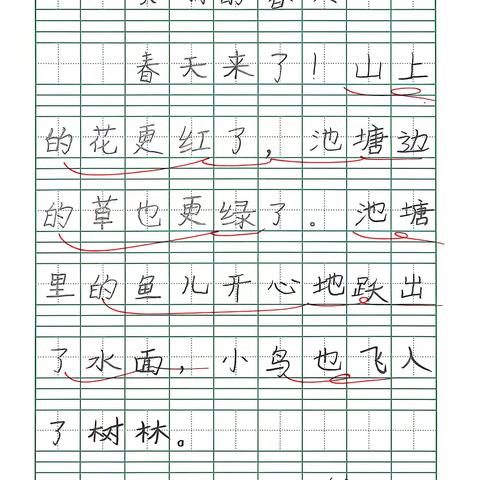 春天来了！山上
的花更红了，池塘边
的草也更绿了。池塘
里的鱼儿开心地跃出
了水面，小鸟也飞入
了树林。